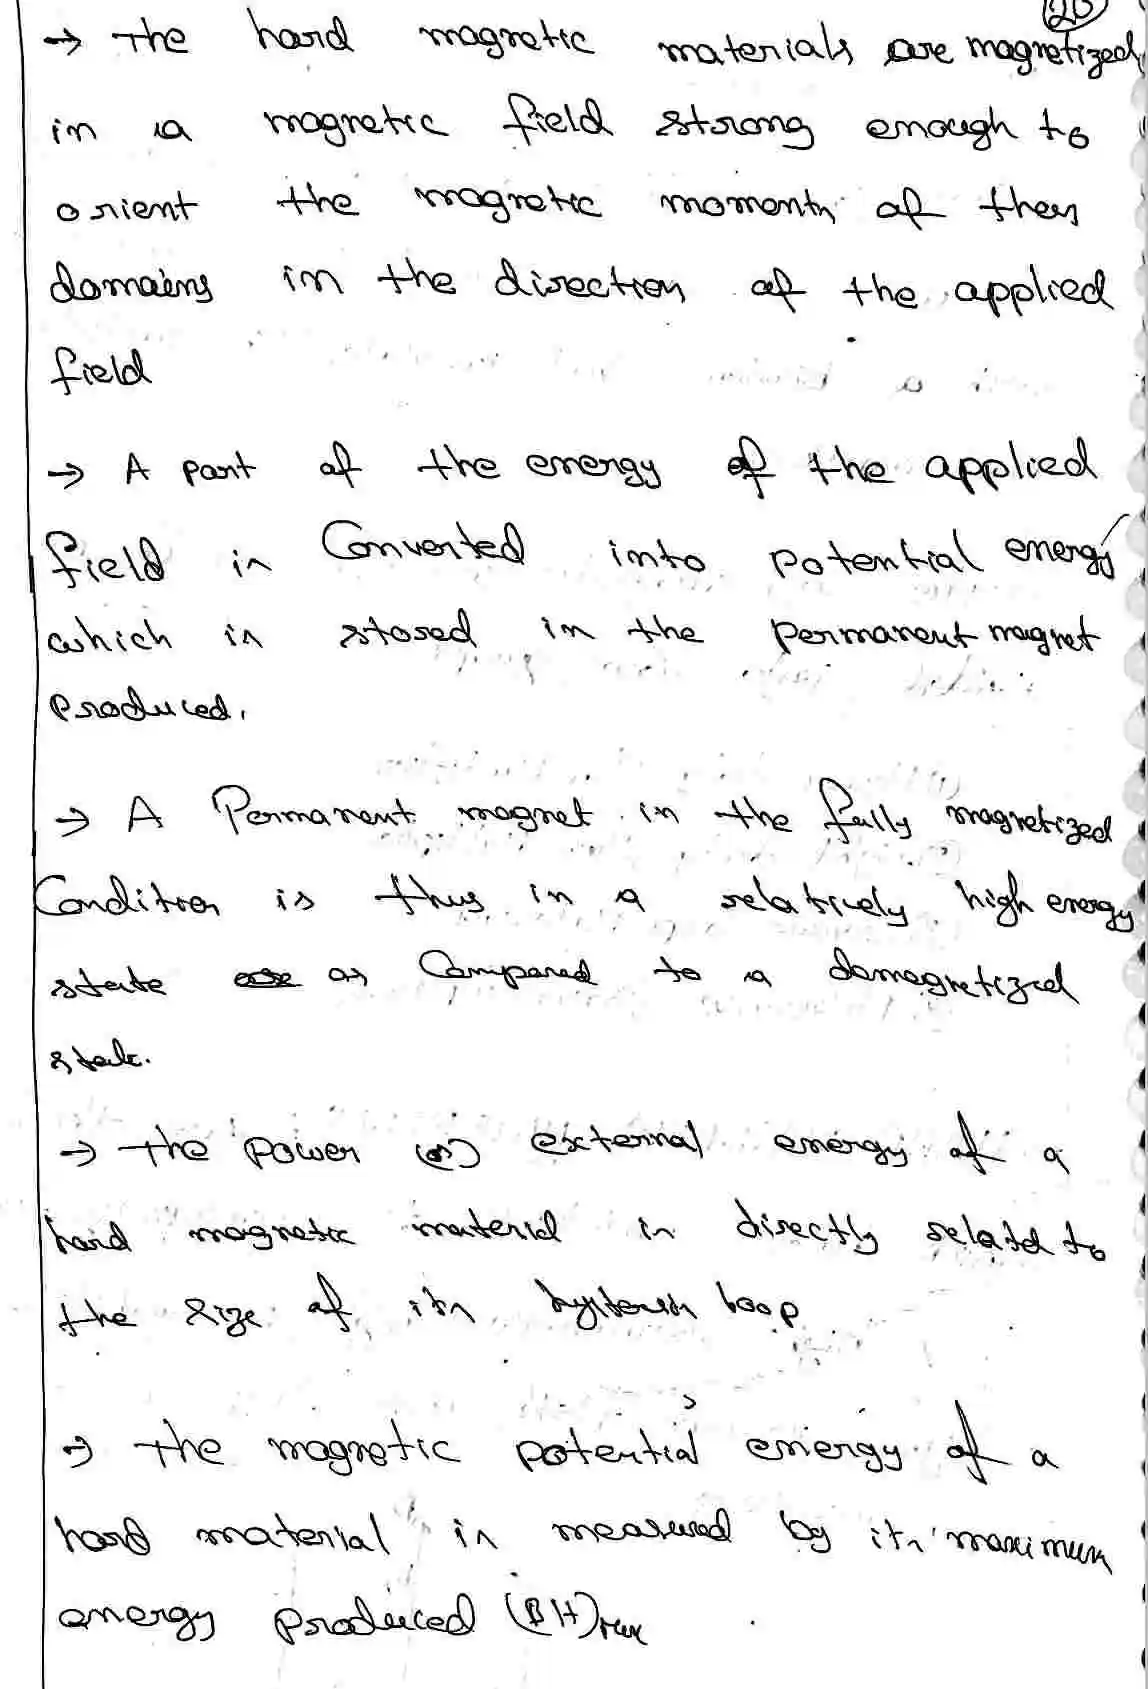 20
→ The hard magnetic materials are magnetized
in a magnetic field strong enough to
orient the magnetic moments of their
domains in the direction of the applied
field
→ A part of the energy of the applied
field is Converted into potential energy
which is stored in the permanent magnet
produced.
→ A Permanent magnet in the fully magnetized
Condition is thus in a relatively high energy
state as Compared to a demagnetized
state.
→ The power (or) external energy of a
hard magnetic material is directly related to
the size of its hysteresis loop
→ The magnetic potential energy of a
hard material is measured by its maximum
energy produced (BH)max